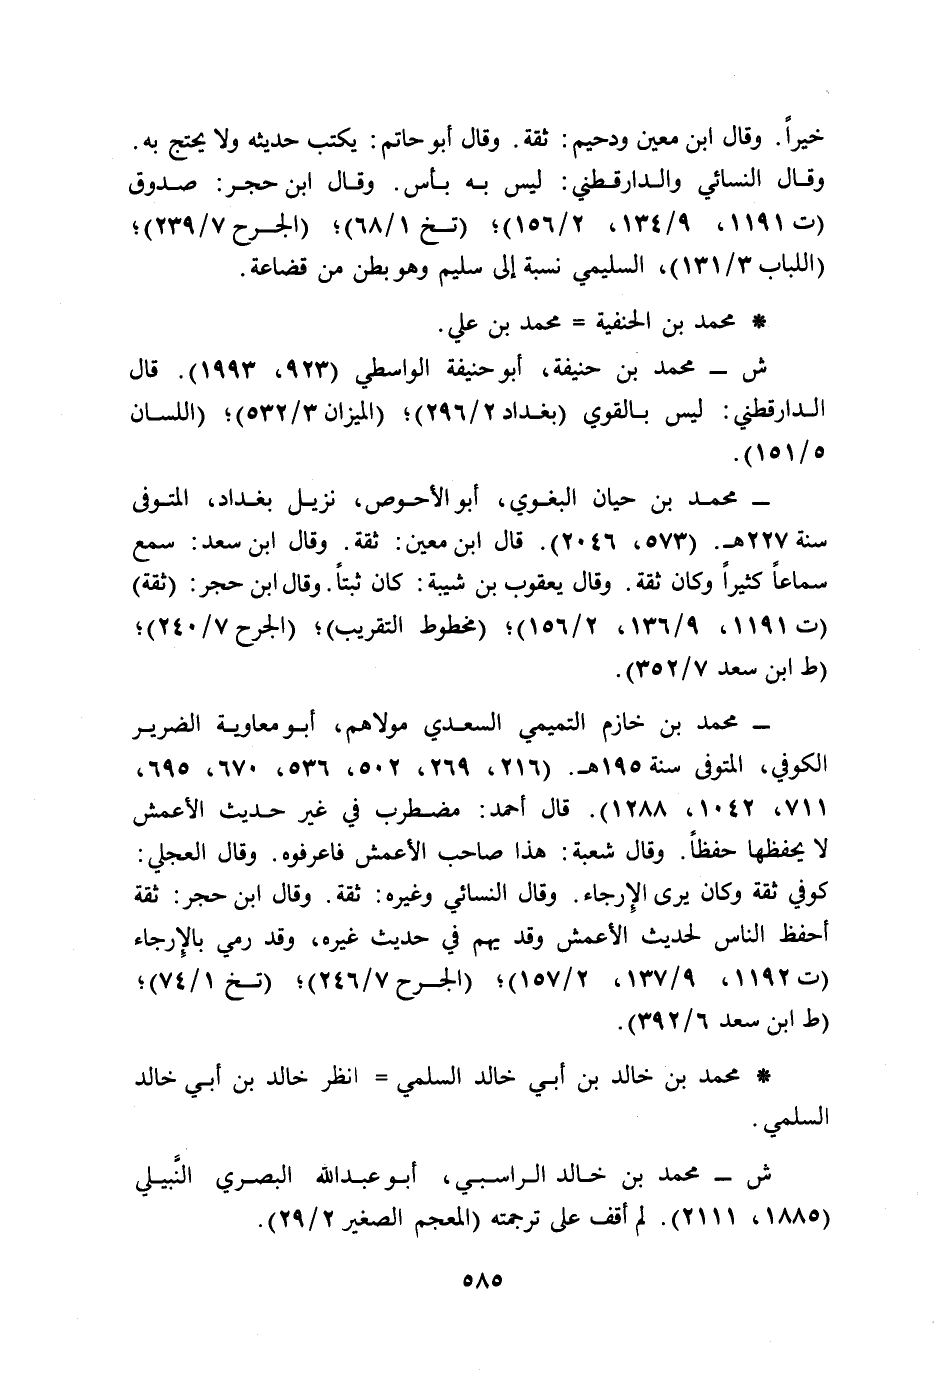 خيراً. وقال ابن معين ودحيم: ثقة. وقال أبو حاتم: يكتب حديثه ولا يحتج به.
وقال النسائي والدارقطني: ليس به بأس. وقال ابن حجر: صدوق
(ت ١١٩١، ١٣٤/٩، ١٥٦/٢)؛ (تخ ٦٨/١)؛ (الجرح ٢٣٩/٧)؛
(اللباب ١٣١/٣)، السليمي نسبة إلى سليم وهو بطن من قضاعة.
* محمد بن الحنفية = محمد بن علي.
ش ـ محمد بن حنيفة، أبو حنيفة الواسطي (٩٢٣، ١٩٩٣). قال
الدارقطني: ليس بالقوي (بغداد ٢٩٦/٢)؛ (الميزان ٥٣٢/٣)؛ (اللسان
١٥١/٥).
ـ محمد بن حيان البغوي، أبو الأحوص، نزيل بغداد، المتوفى
سنة ٢٢٧هـ. (٥٧٣، ٢٠٤٦). قال ابن معين: ثقة. وقال ابن سعد: سمع
سماعاً كثيراً وكان ثقة. وقال يعقوب بن شيبة: كان ثبتاً. وقال ابن حجر: (ثقة)
(ت ١١٩١، ١٣٦/٩، ١٥٦/٢)؛ (مخطوط التقريب)؛ (الجرح ٢٤٠/٧)؛
(ط ابن سعد ٣٥٢/٧).
ـ محمد بن خازم التميمي السعدي مولاهم، أبو معاوية الضرير
الكوفي، المتوفى سنة ١٩٥هـ. (٢١٦، ٢٦٩، ٥٠٢، ٥٣٦، ٦٧٠، ٦٩٥،
٧١١، ١٠٤٢، ١٢٨٨). قال أحمد: مضطرب في غير حديث الأعمش
لا يحفظها حفظاً. وقال شعبة: هذا صاحب الأعمش فاعرفوه. وقال العجلي:
كوفي ثقة وكان يرى الإرجاء. وقال النسائي وغيره: ثقة. وقال ابن حجر: ثقة
أحفظ الناس لحديث الأعمش وقد يهم في حديث غيره، وقد رمي بالإرجاء
(ت ١١٩٢، ١٣٧/٩، ١٥٧/٢)؛ (الجرح ٢٤٦/٧)؛ (تخ ٧٤/١)؛
(ط ابن سعد ٣٩٢/٦).
* محمد بن خالد بن أبي خالد السلمي = انظر خالد بن أبي خالد
السلمي.
ش ـ محمد بن خالد الراسبي، أبو عبدالله البصري النَّبيلي
(١٨٨٥، ٢١١١). لم أقف على ترجمته (المعجم الصغير ٢٩/٢).
٥٨٥